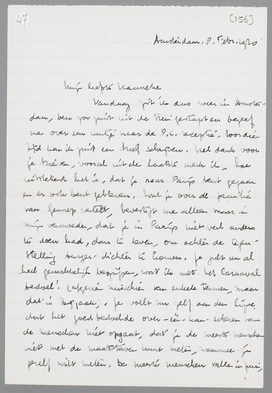 47
[156]
Amsterdam. 8. Febr. 1930
Mijn liefste Hanneke
Vandaag zit ik dus weer in Amster-
dam, ben zoo juist uit de trein gestapt en begeef
me over een uurtje naar de P.C. receptie. Voor dien
tijd kan ik juist een brief schrijven. Veel dank voor
je brieven, vooral uit de laatste merk ik, hoe
uitstekend het is, dat je naar Parijs bent gegaan
en er ook bent gebleven. Wat je over de familie
van vertelt, bevestigt me alleen maar in
mijn vermoeden, dat je in Parijs niet veel anders
te doen had, dan te leven, om achter de tegen-
stelling burger-dichter te komen. Je zult nu al
heel gemakkelijk begrijpen, wat ik met het Carnaval
bedoel! misschien van enkele termen, maar
dat is bijzaak. Je valt nu zelf aan den lijve
dat het goed bedoelde over-één-kam-scheren van
de menschen niet opgaat, dat je de meeste menschen
niet met de maatstaven kunt meten, waarmee je
jezelf wilt meten. De meeste menschen vallen in puin,